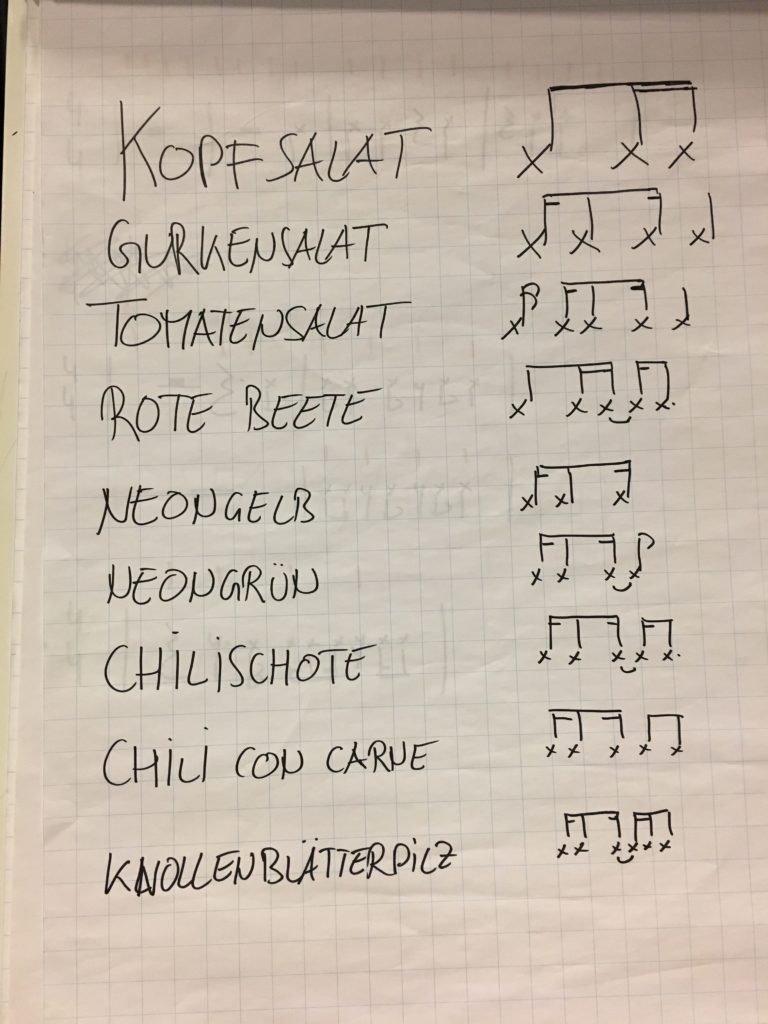 KOPFSALAT
GURKENSALAT
TOMATENSALAT
ROTE BEETE
NEONGELB
NEONGRÜN
CHiLiSCHOTE
CHiLi CON CARNE
KNOLLENBLÄTTERPiLZ